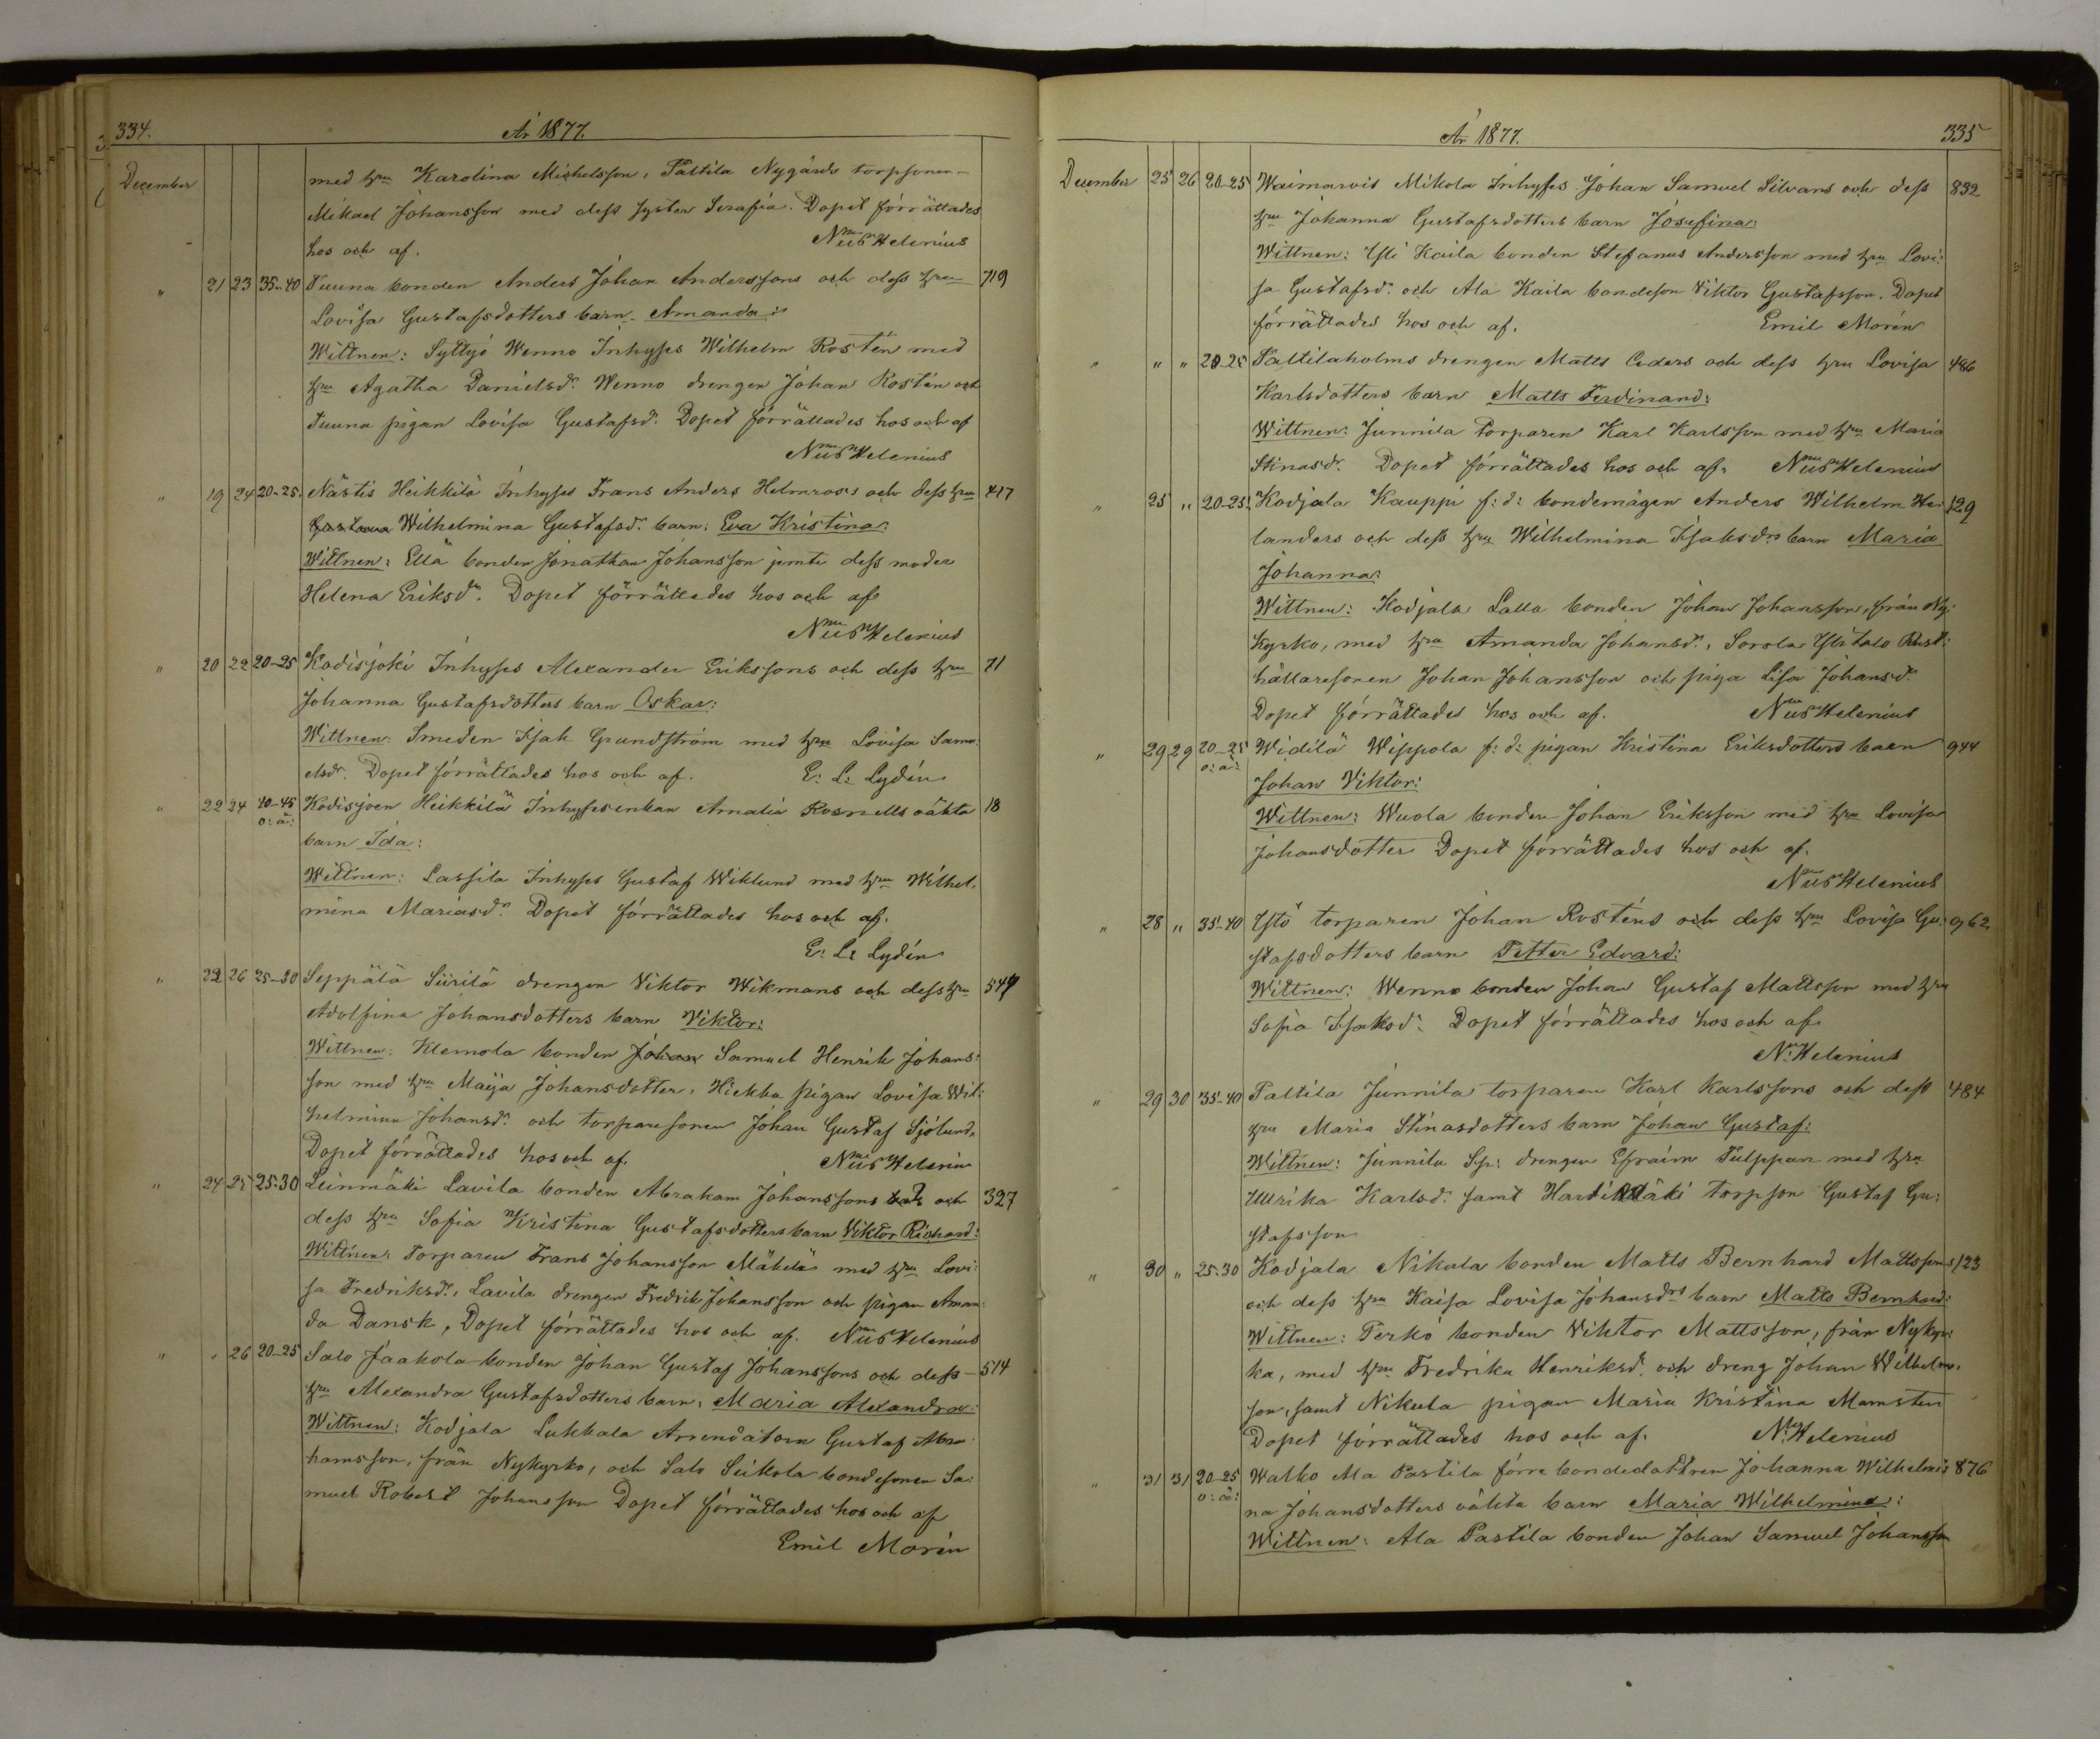 334. År 1877.
December med hru Karolina Michelsson, Paltila Nygårds torpsonen
Mikael Johansson med dess syster Serafia. Dopet förrättades
hos och af. Nils Helenius
" 21 23 35-40 Tuuna bonden Anders Johan Anderssons och dess hru 719
Lovisa Gustafsdotters barn Amanda:
Wittnen: Syltyö Wenno Inhyses Wilhelm Rostén med
hru Agatha Danielsdr. Wenno drengen Johan Rostén och
Tuuna pigan Lovisa Gustafsdr. Dopet förrättades hos och af
Nils Helenius
" 19 24 20-25 Nästis Heikkilä Inhyses Frans Anders Helmroos's och dess hru 417
Gustava Wilhelmina Gustafsdr. barn: Eva Kristina:
Wittnen: Ellä bonden Jonathan Johansson jemte dess moder
Helena Eriksdr. Dopet förrättades hos och af
Nils Helenius
" 20 22 20-25 Kodisjoki Inhyses Alexander Erikssons och dess hru 71
Johanna Gustafsdotters barn Oskar:
Wittnen: Smeden Isak Grundström med hru Lovisa Samu-
elsdr. Dopet förrättades hos och af. E: L: Lydén
" 22 24 40-45 Kodisjoen Heikkilä Inhysesenkan Amalia Rosnells oäkta 18
o: ä: barn Ida:
Wittnen: Lassila Inhyses Gustaf Wiklund med hru Wilhel-
mina Mariasdr. Dopet förrättades hos och af.
E: L: Lydén
" 22 26 25-30 Seppälä Siirilä drengen Viktor Wikmans och dess hru 549
Adolfina Johansdotters barn Viktor:
Wittnen: Klemola bonden Johan Samuel Henrik Johans:
son med hru Maija Johansdotter, Hiekka pigan Lovisa Wil:
helmina Johansdr. och torparesonen Johan Gustaf Sjölund.
Dopet förrättades hos och af. Nils Helenius
" 24 25 25-30 Leinmäki Lavila bonden Abraham Johanssons och 327
dess hru Sofia Kristina Gustafsdotters barn Viktor Richard:
Wittnen: Torparen Frans Johansson Mäkelä med hru Lovi:
sa Fredriksdr., Lavila drengen Fredrik Johansson och pigan Aman-
da Dansk, Dopet förrättades hos och af. Nils Helenius
" " 26 20-25 Salo Jaakola bonden Johan Gustaf Johanssons och dess 514
hru Alexandra Gustafsdotters barn, Maria Alexandra:
Wittnen: Kodjala Lukkala Arrendatorn Gustaf Abra-
hamsson, från Nykyrko, och Salo Seikola bondesonen Sa:
muel Robert Johansson Dopet förrättades hos och af
Emil Morén
År 1877. 335
December 25 26 20-25 Waimarois Mikola Inhyses Johan Samuel Silvans och dess 832
hru Johanna Gustafsdotters barn Josefina:
Wittnen: Yli Kaila bonden Stefanus Andersson med hru Lovi:
sa Gustafsdr. och Ala Kaila bondeson Viktor Gustafsson. Dopet
förrättades hos och af. Emil Morén
" " " 20-25 Paltilaholms drengen Matts Ceders och dess hru Lovisa 486
Karlsdotters barn Matts Ferdinand:
Wittnen: Junnila Torparen Karl Karlsson med hru Maria
Stinasdr. Dopet förrättades hos och af. Nils Helenius
" 25 " 20-25 Kodjala Kauppi f: d: bondemågen Anders Wilhelm He: 129
landers och dess hru Wilhelmina Isaksdrs barn Maria
Johanna:
Wittnen: Kodjala Lalla bonden Johan Johansson, från Ny:
kyrko, med hru Amanda Johansdr., Sorola Ylitalo Rust:
hållaresonen Johan Johansson och piga Lisa Johansdr.
Dopet förrättades hos och af. Nils Helenius
" 29 29 20-25 Widilä Wippola f: d: pigan Kristina Eriksdotters barn 944
o: ä: Johan Viktor:
Wittnen: Wuola bonden Johan Eriksson med hru Lovisa
Johansdotter Dopet förrättades hos och af.
Nils Helenius
" 28 " 35-40 Ylitö torparen Johan Rosténs och dess hru Lovisa Gu: 962
stafsdotters barn Petter Edvard:
Wittnen: Wenno bonden Johan Gustaf Mattsson med hru
Sofia Isaksdr. Dopet förrättades hos och af.
N. Helenius
" 29 30 35-40 Paltila Junnila torparen Karl Karlssons och dess 484
hru Maria Stinasdotters barn Johan Gustaf:
Wittnen: Junnila Sp: drengen Efraim Tulppan med hru
Ullrika Karlsdr. samt torpson Gustaf Gu:
stafsson
" 30 " 25-30 Kodjala Nikula bonden Matts Bernhard Mattssons 123
och dess hru Kaisa Lovisa Johansdrs barn Matts Bernhard:
Wittnen: Perkö bonden Viktor Mattsson, från Nykyr:
ka, med hru Fredrika Henriksdr. och dreng Johan Wilhelms-
son, samt Nikula pigan Maria Kristina Mamsten
Dopet förrättades hos och af. N. Helenius
" 31 31 20-25 Walko Ala Pastila förre bondedottren Johanna Wilhelmi: 876
o: ä: na Johansdotters oäkta barn Maria Wilhelmina:
Wittnen: Ala Pastila bonden Johan Samuel Johansson